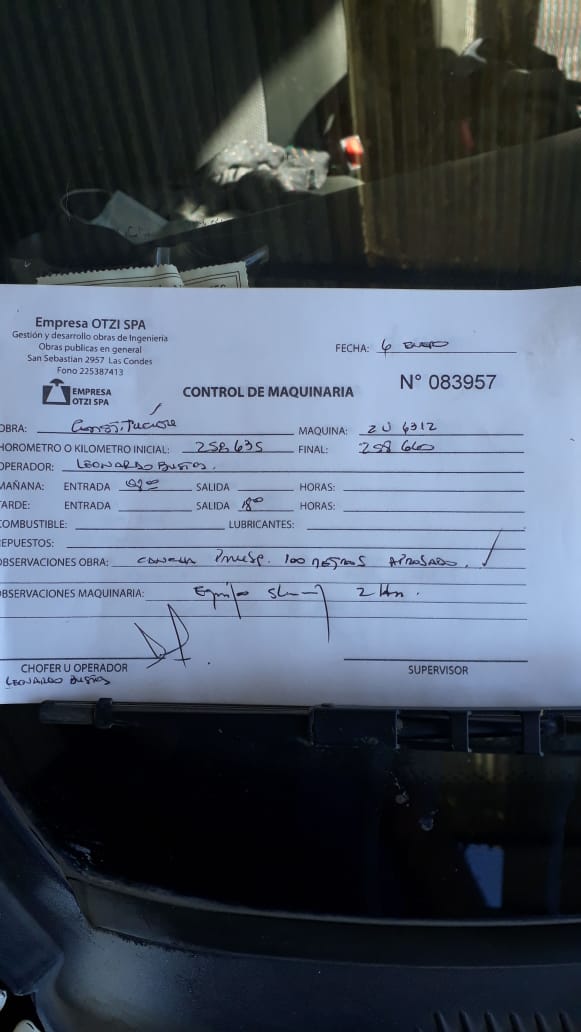 Empresa OTZI SPA
Gestión y desarrollo obras de Ingeniería
Obras publicas en general
San Sebastian 2957 Las Condes
Fono 225387413
EMPRESA
OTZI SPA
FECHA: 6 ENERO
CONTROL DE MAQUINARIA
N° 083957
OBRA: MAQUINA: ZU 6312
HOROMETRO O KILOMETRO INICIAL: 258635 FINAL: 258660
OPERADOR: LEONARDO BUSTOS.
MAÑANA: ENTRADA SALIDA HORAS:
TARDE: ENTRADA SALIDA 18⁰⁰ HORAS:
COMBUSTIBLE: LUBRICANTES:
REPUESTOS:
OBSERVACIONES OBRA: 100 METROS
OBSERVACIONES MAQUINARIA: Equipo
CHOFER U OPERADOR
LEONARDO BUSTOS
SUPERVISOR